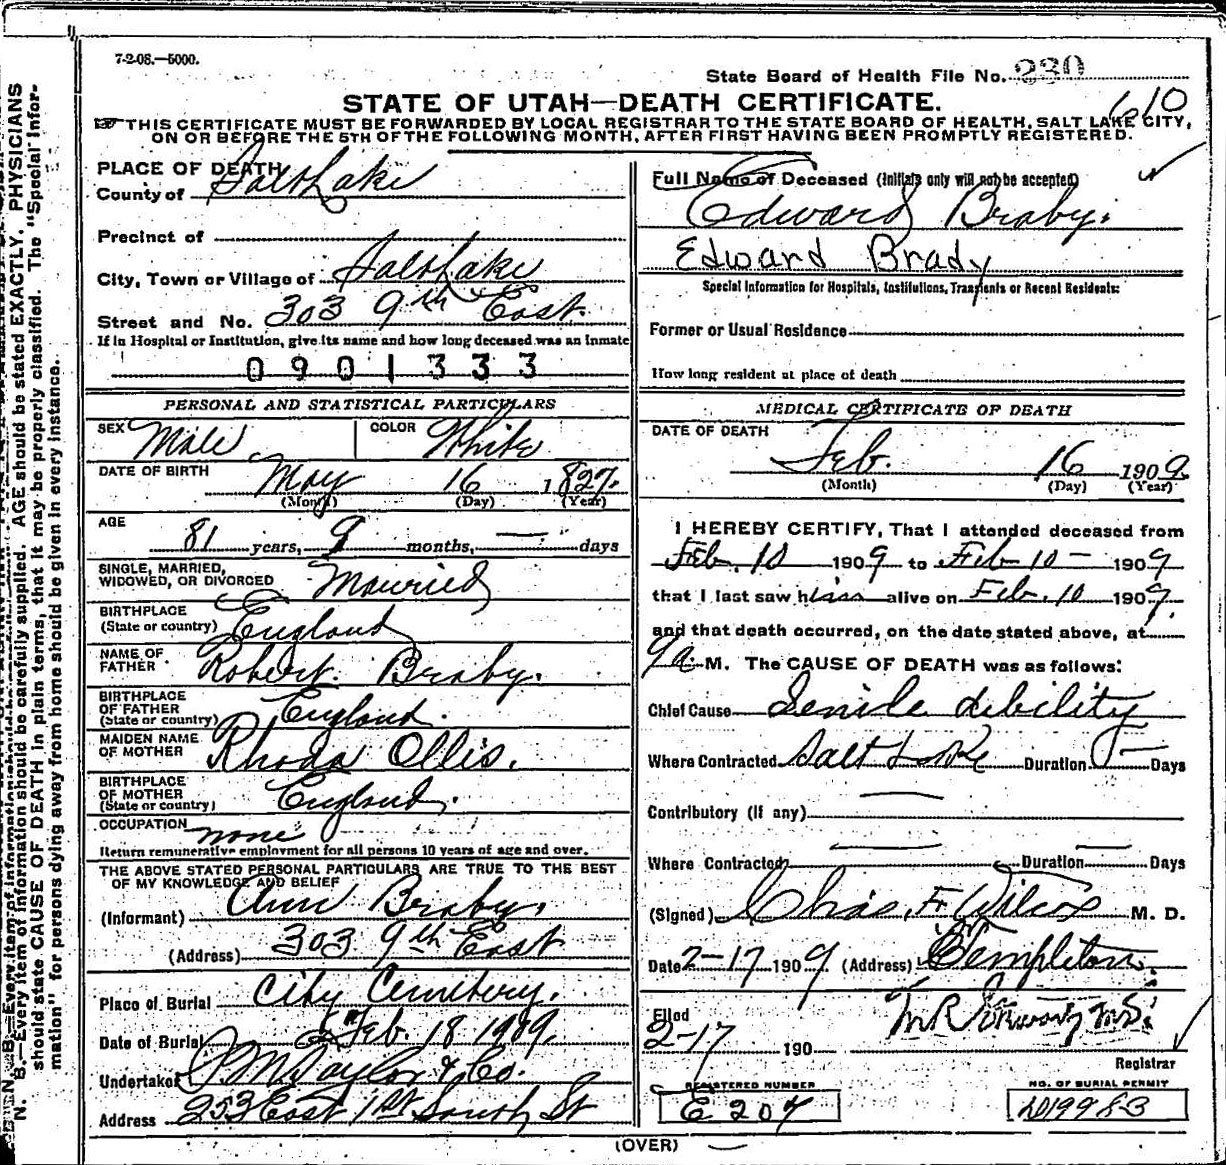 7-2-08.—5000.
State Board of Health File No. 230
STATE OF UTAH—DEATH CERTIFICATE.
610
THIS CERTIFICATE MUST BE FORWARDED BY LOCAL REGISTRAR TO THE STATE BOARD OF HEALTH, SALT LAKE CITY,
ON OR BEFORE THE 5TH OF THE FOLLOWING MONTH, AFTER FIRST HAVING BEEN PROMPTLY REGISTERED.
PLACE OF DEATH
County of Salt Lake
Precinct of
City, Town or Village of Salt Lake
Street and No. 303 9th East.
If in Hospital or Institution, give its name and how long deceased was an Inmate
0901333
PERSONAL AND STATISTICAL PARTICULARS
SEX Male COLOR White
DATE OF BIRTH May 16 1827.
(Month) (Day) (Year)
AGE
81 years, 9 months, — days
SINGLE, MARRIED,
WIDOWED, OR DIVORCED Married
BIRTHPLACE
(State or country) England
NAME OF
FATHER Robert Braby.
BIRTHPLACE
OF FATHER
(State or country) England.
MAIDEN NAME
OF MOTHER Rhoda Ollis.
BIRTHPLACE
OF MOTHER
(State or country) England.
OCCUPATION none
Return remunerative employment for all persons 10 years of age and over.
THE ABOVE STATED PERSONAL PARTICULARS ARE TRUE TO THE BEST
OF MY KNOWLEDGE AND BELIEF
(Informant) Ann Braby.
(Address) 303 9th East
Place of Burial City Cemetery.
Date of Burial Feb. 18 1909.
Undertaker Taylor & Co.
Address 253 East 1st South St
Full Name of Deceased (Initials only will not be accepted)
Edward Braby.
Edward Brady
Special Information for Hospitals, Institutions, Transients or Recent Residents:
Former or Usual Residence
How long resident at place of death
MEDICAL CERTIFICATE OF DEATH
DATE OF DEATH
Feb. 16 1909.
(Month) (Day) (Year)
I HEREBY CERTIFY, That I attended deceased from
Feb. 10 1909 to Feb 10 — 1909
that I last saw him alive on Feb. 10 1909.
and that death occurred, on the date stated above, at
9 a M. The CAUSE OF DEATH was as follows:
Chief Cause Senile debility
Where Contracted Salt Lake Duration — Days
Contributory (If any) —
Where Contracted — Duration — Days
(Signed) Chas. F. Wilcox M. D.
Date 2-17 1909 (Address) Templeton.
Filed
2-17 190
Registrar
REGISTERED NUMBER
E 207
NO. OF BURIAL PERMIT
D19983
(OVER)
N. B.—Every item of information should be carefully supplied. AGE should be stated EXACTLY. PHYSICIANS
should state CAUSE OF DEATH in plain terms, that it may be properly classified. The "Special Infor-
mation" for persons dying away from home should be given in every instance.